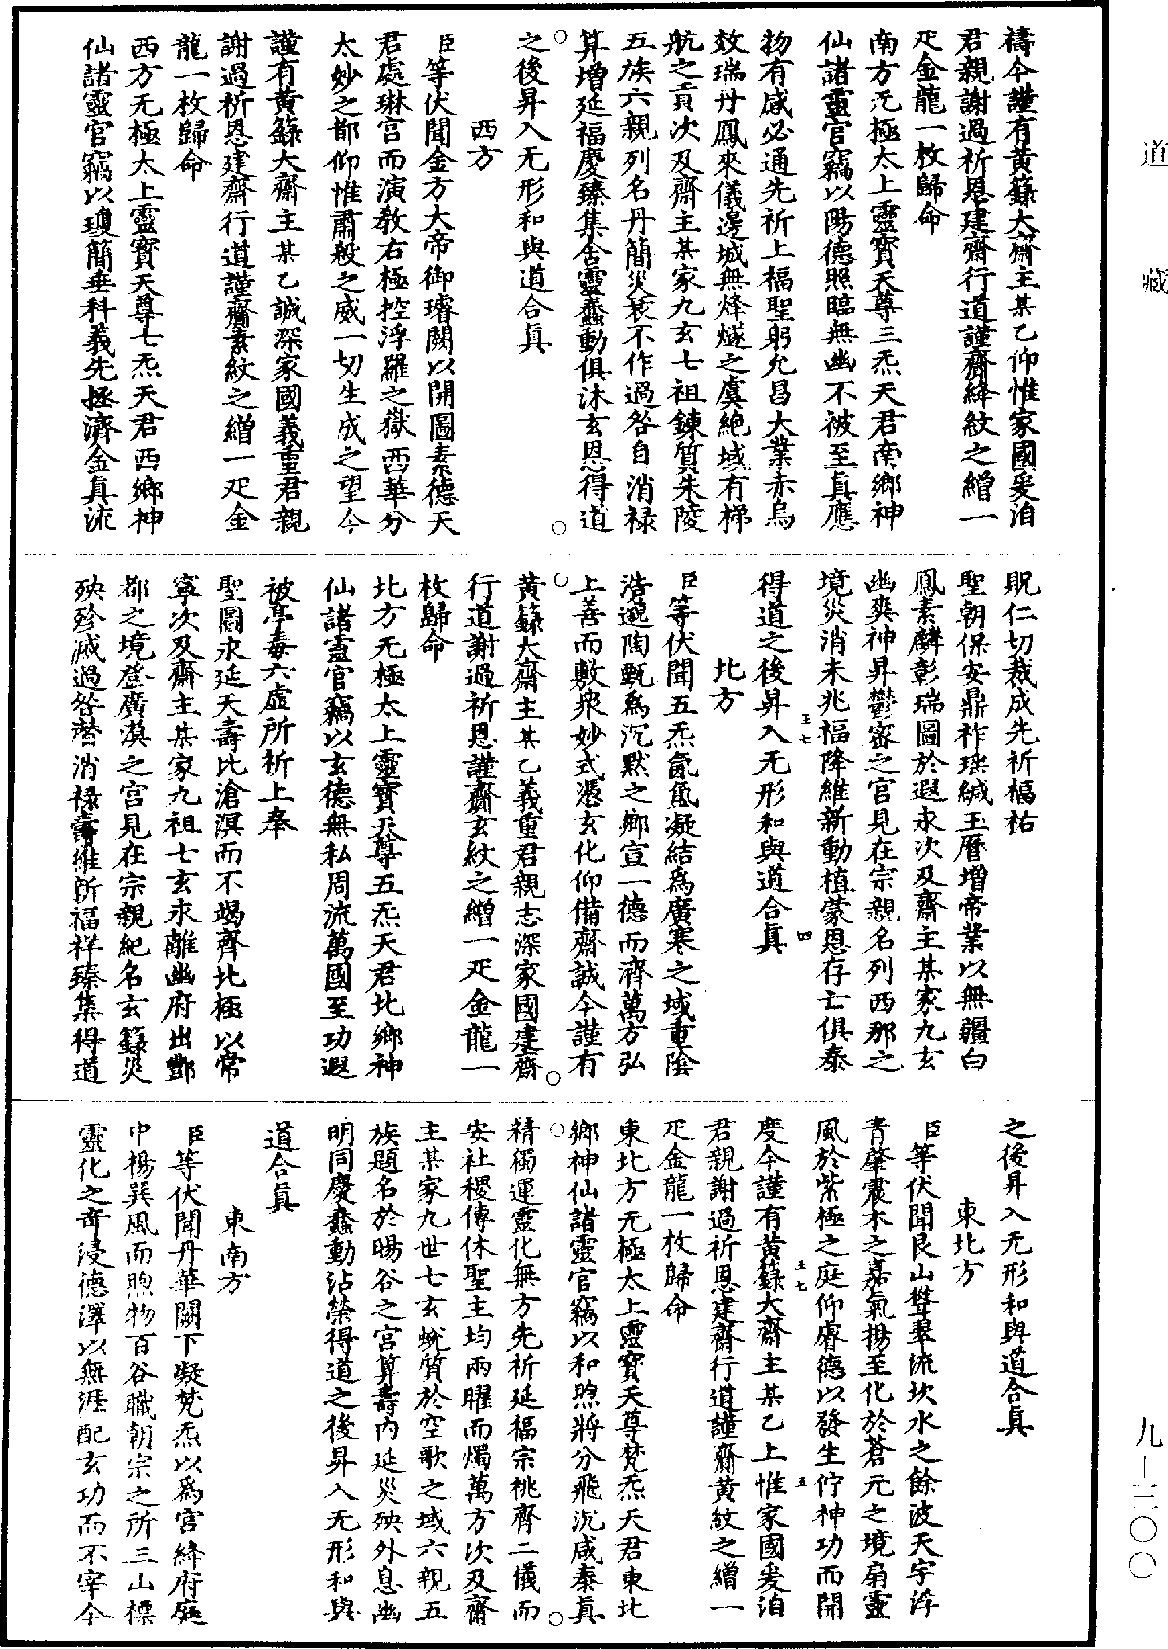 禱今謹有黃籙大齋主某乙仰惟家國爰洎
君親謝過祈恩建齋行道謹齎絳紋之繒一
疋金龍一枚歸命
南方无極太上靈寶天尊三炁天君南鄉神
仙諸靈官竊以陽德照臨無幽不被至真應
物有感必通先祈上福聖躬允昌大業赤烏
效瑞丹鳳來儀邊城無烽燧之虞絶域有梯
航之貢次及齋主某家九玄七祖鍊質朱陵
五族六親列名丹簡災衰不作過咎自消禄
算增延福慶臻集含靈蠢動俱沐玄恩得道
之後昇入无形和與道合真
西方
臣等伏聞金方大帝御璿闕以開圖素德天
君處琳宫而演教右極控浮羅之獄西華分
太妙之都仰惟肅殺之威一切生成之望今
謹有黃籙大齋主某乙誠深家國義重君親
謝過祈恩建齋行道謹齎素紋之繒一疋金
龍一枚歸命
西方无極太上靈寶天尊七炁天君西鄉神
仙諸靈官竊以瓊簡垂科義先拯濟金真流
貺仁切裁成先祈福祐
聖朝保安鼎祚瑶緘玉曆增帝業以無疆白
鳳素麟彰瑞圖於遐永次及齋主某家九玄
幽爽神昇鬱密之官見在宗親名列西那之
境災消未兆福降維新動植蒙恩存亡俱泰
得道之後昇入无形和與道合真
王七
四
北方
臣等伏聞五炁氤氲凝結爲廣寒之域重陰
浩邈陶甄爲沉默之鄉宣一德而濟萬方弘
上善而敷衆妙式憑玄化仰備齋誠今謹有
黃籙大齋主某乙義重君親志深家國建齋
行道謝過祈恩謹齎玄紋之繒一疋金龍一
枚歸命
北方无極太上靈寶天尊五炁天君北鄉神
仙諸靈官竊以玄德無私周流萬國至功遐
被亭毒六虛所祈上奉
聖圖永延天壽比滄溟而不竭齊北極以常
寧次及齋主某家九祖七玄永離幽府出酆
都之境登廣漠之宫見在宗親紀名玄籙災
殃殄滅過咎潛消禄壽維新福祥臻集得道
之後昇入无形和與道合真
東北方
臣等伏聞艮山聳翠流坎水之餘波天宇浮
青肇震木之嘉氣揚至化於蒼元之境扇靈
風於紫極之庭仰膺德以發生佇神功而開
度今謹有黃籙大齋主某乙上惟家國爰洎
君親謝過祈恩建齋行道謹齎黃紋之繒一
疋金龍一枚歸命
王七
五
東北方无極太上靈寶天尊梵炁天君東北
鄉神仙諸靈官竊以和煦將分飛沉咸泰真
精獨運靈化無方先祈延福宗祧齊二儀而
安社稷傳休聖主均兩曜而燭萬方次及齋
主某家九世七玄蛻質於空歌之域六親五
族題名於暘谷之宫算壽内延災殃外息幽
明同慶蠢動沾榮得道之後昇入无形和與
道合真
東南方
臣等伏聞丹華闕下凝梵炁以爲宫絳府庭
中揚巽風而煦物百谷職朝宗之所三山標
靈化之奇浸德澤以無涯配玄功而不宰今
道藏
九—三〇〇